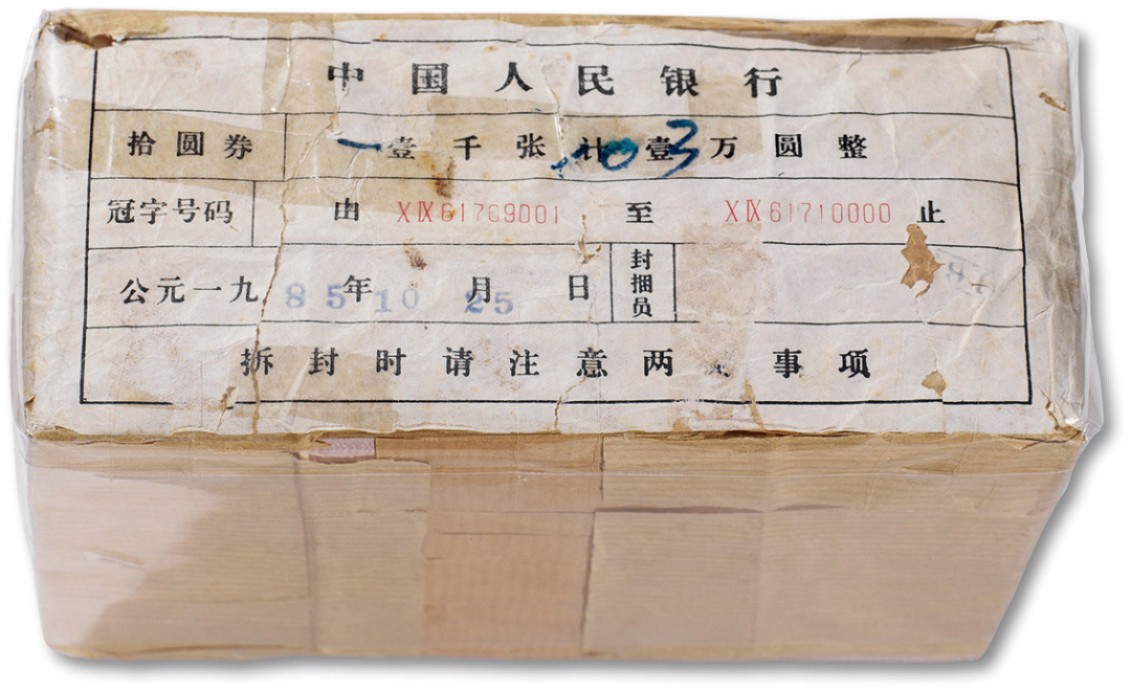 中国人民银行
拾圆券 一壹千张计壹万圆整 03
冠字号码 由 XIX61709001 至 XIX61710000 止
公元一九85年10月25日 封捆员
拆封时请注意两事项